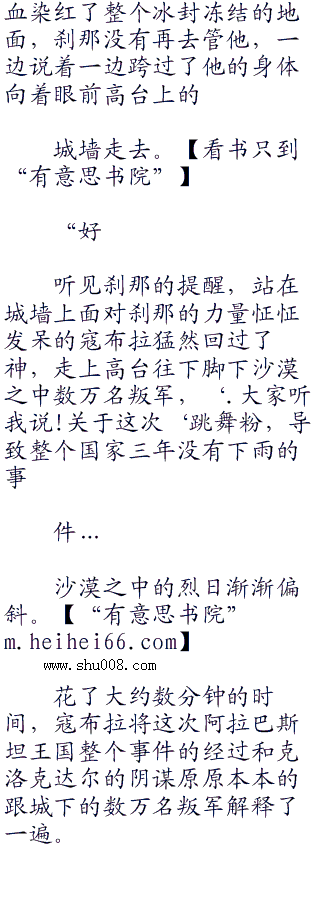 血染红了整个冰封冻结的地
面，刹那没有再去管他，一
边说着一边跨过了他的身体
向着眼前高台上的
城墙走去。【看书只到
“有意思书院”】
“好
听见刹那的提醒，站在
城墙上面对刹那的力量怔怔
发呆的寇布拉猛然回过了
神，走上高台往下脚下沙漠
之中数万名叛军，‘.大家听
我说!关于这次‘跳舞粉，导
致整个国家三年没有下雨的
事
件...
沙漠之中的烈日渐渐偏
斜。【“有意思书院”
m.heihei66.com】
www.shu008.com
花了大约数分钟的时
间，寇布拉将这次阿拉巴斯
坦王国整个事件的经过和克
洛克达尔的阴谋原原本本的
跟城下的数万名叛军解释了
一遍。